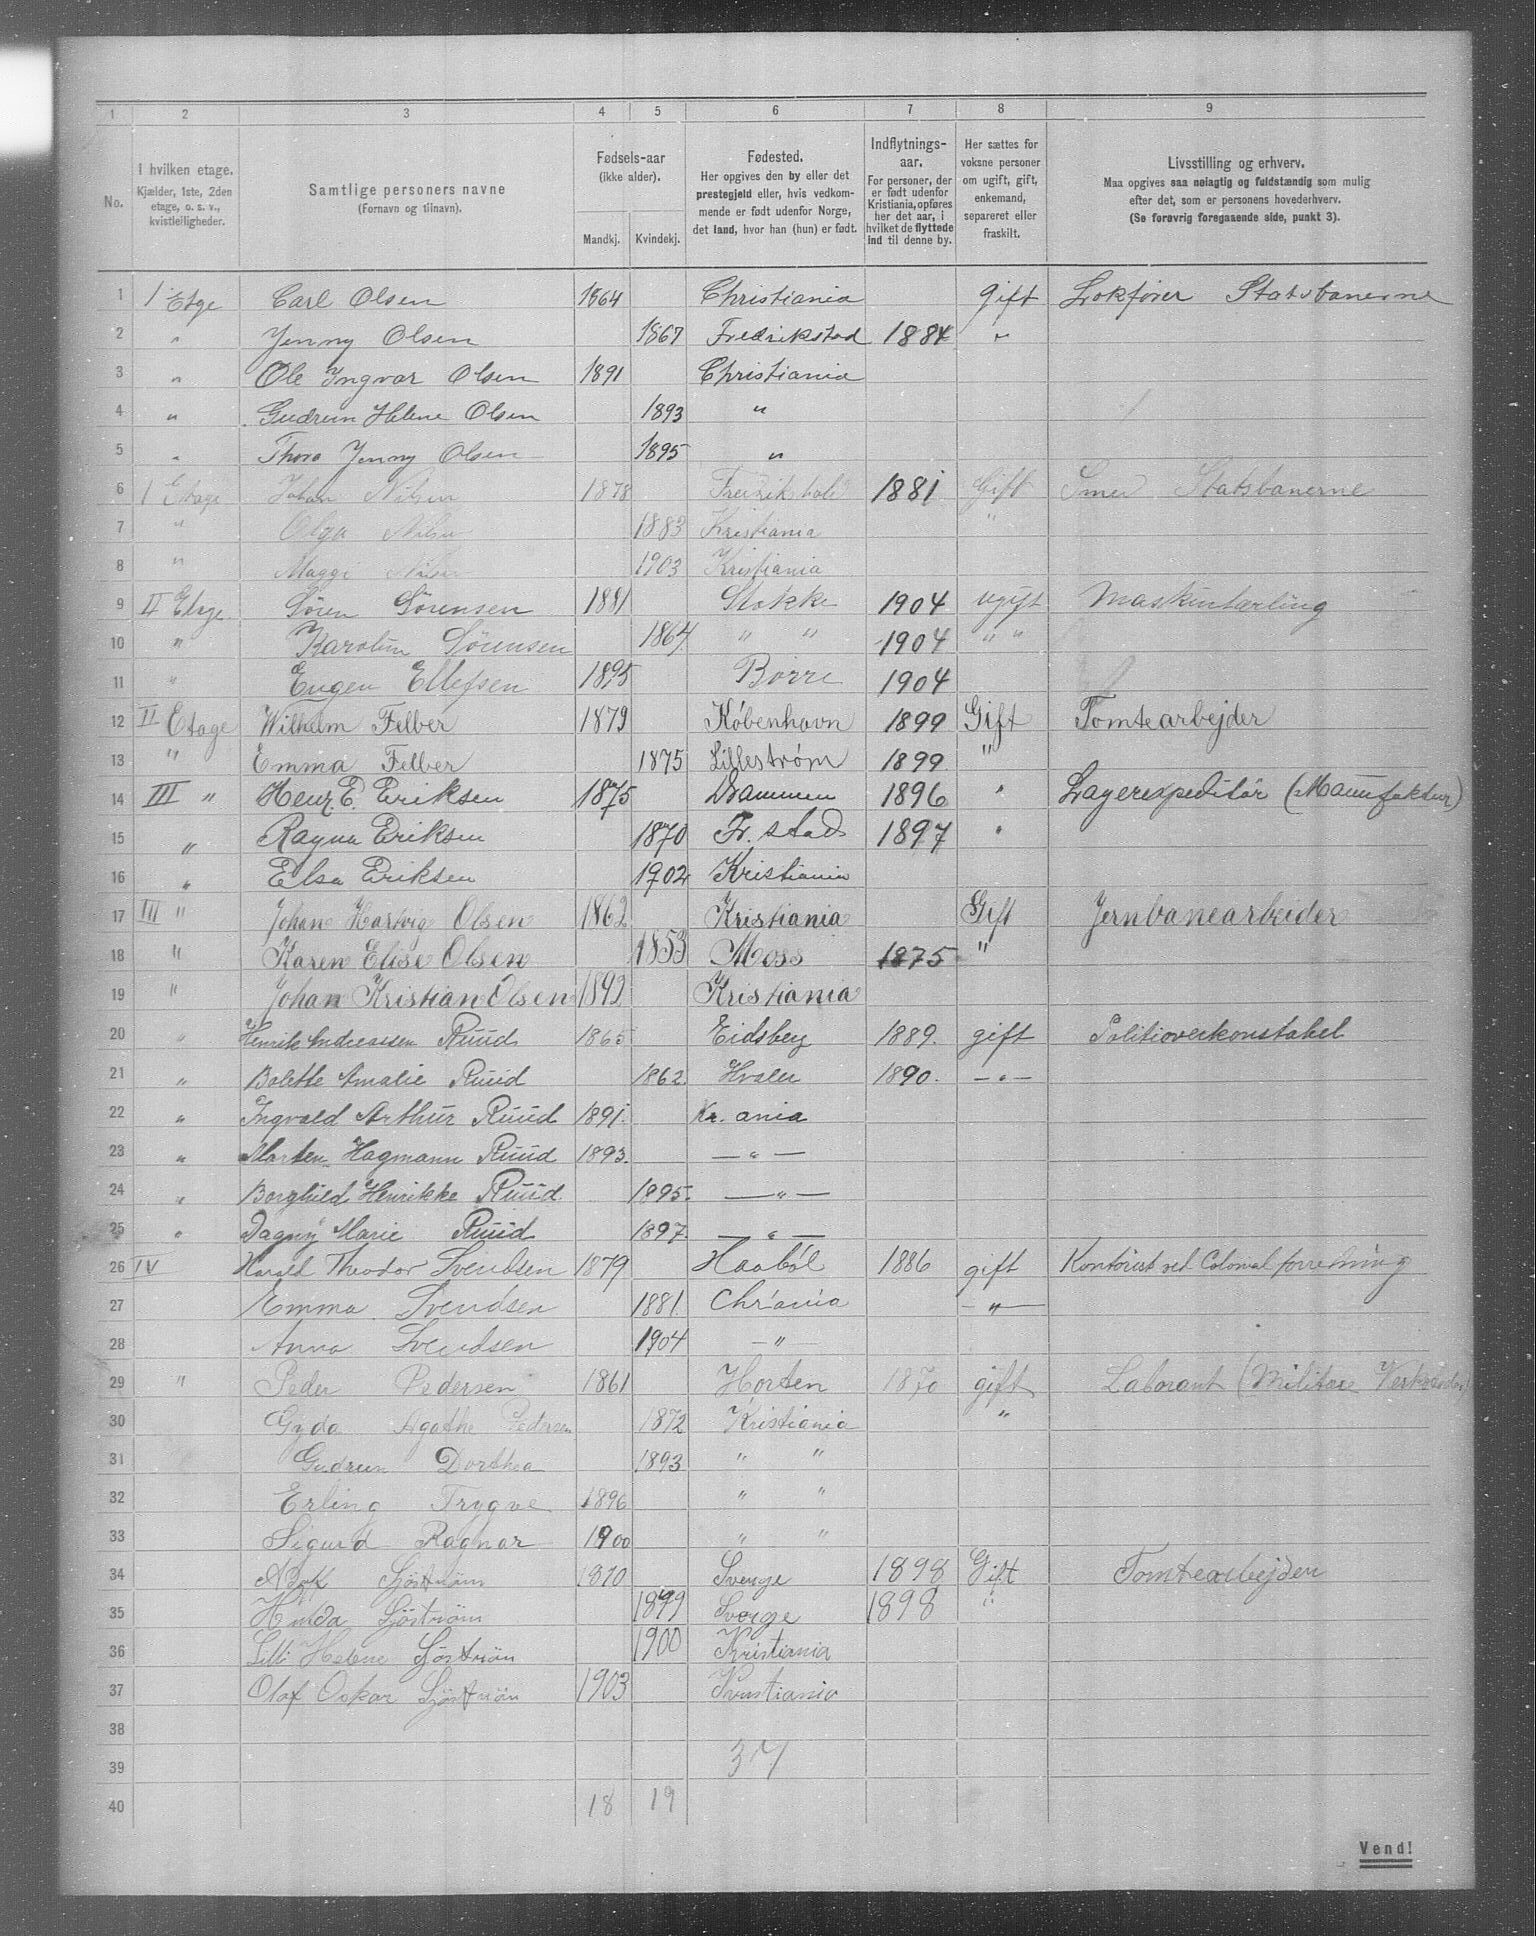 1 2 3 4 5 6 7 8 9
No. I hvilken etage. Kjælder, 1ste, 2den etage, o. s. v., kvistleiligheder. Samtlige personers navne (Fornavn og tilnavn). Fødsels-aar (ikke alder). Mandkj. Kvindekj. Fødested. Her opgives den by eller det prestegjeld eller, hvis vedkommende er født udenfor Norge, det land, hvor han (hun) er født. Indflytnings-aar. For personer, der er født udenfor Kristiania, opføres her det aar, i hvilket de flyttede ind til denne by. Her sættes for voksne personer om ugift, gift, enkemand, separeret eller fraskilt. Livsstilling og erhverv. Maa opgives saa nøiagtig og fuldstændig som mulig efter det, som er personens hovederhverv. (Se forøvrig foregaaende side, punkt 3).
1 1 Etge Carl Olsen 1864 Christiania gift Lokfører Statsbanerne
2 " Jenny Olsen 1867 Fredrikstad 1884 "
3 " Ole Ingvar Olsen 1891 Christiania
4 " Gudrun Helene Olsen 1893 "
5 " Thora Jenny Olsen 1895 "
6 1 Etage Johan Nilsen 1878 1881 Gift Smed Statsbanerne
7 " Olga Nilsen 1883 Kristiania "
8 " Maggi Nilsen 1903 Kristiania
9 II Etage Sören Sörensen 1881 Stokke 1904 ugift Maskinlærling
10 " Karolin Sørensen 1864 " " 1904 " "
11 " Eugen Ellefsen 1895 Borre 1904
12 II Etage Wilhelm Felber 1879 København 1899 Gift Tomtearbejder
13 " Emma Felber 1875 Lillestrøm 1899 "
14 III " Henr. E. Eriksen 1875 Drammen 1896 " Lagerexpeditör (Manufaktur)
15 " Ragna Eriksen 1870 Fr. stad 1897 "
16 " Elsa Eriksen 1902 Kristiania
17 III " Johan Hartvig Olsen 1862 Kristiania Gift Jernbanearbeider
18 " Karen Elise Olsen 1853 Moss 1875 "
19 " Johan Kristian Olsen 1892 Kristiania
20 " Henrik Andreassen Ruud 1865 Eidsberg 1889. gift Politioverkonstabel
21 " Bolette Amalie Ruud 1862. Hvaler 1890. — " —
22 " Ingvald Arthur Ruud 1891. Kr. ania
23 " Marten Hagmann Ruud 1893. — " —
24 " Borghild Henrikke Ruud 1895. — " —
25 " Dagny Marie Ruud 1897. — " —
26 IV Harald Theodor Svendsen 1879 Haaböl 1886 gift Kontorist ved Colonial forretning
27 Emma Svendsen 1881. Chr'ania — " —
28 Anna Svendsen 1904 — " —
29 " Peder Pedersen 1861 Horten 1870 gift Laborant (Militære
30 Gyda Agathe Pedersen 1872 Kristiania "
31 Gudrun Dorthea 1893 " "
32 Erling Trygve 1896 " "
33 Sigurd Ragnar 1900 " "
34 Adolf Sjöström 1870 Sverge 1898 Gift Tomtearbejder
35 Sjöström Sverge 1898 "
36 Lilli Helene Sjöström 1900 Kristiania
37 Olaf Oskar Sjöström 1903 Kristiania
38
39 37
40 18 19
Vend!